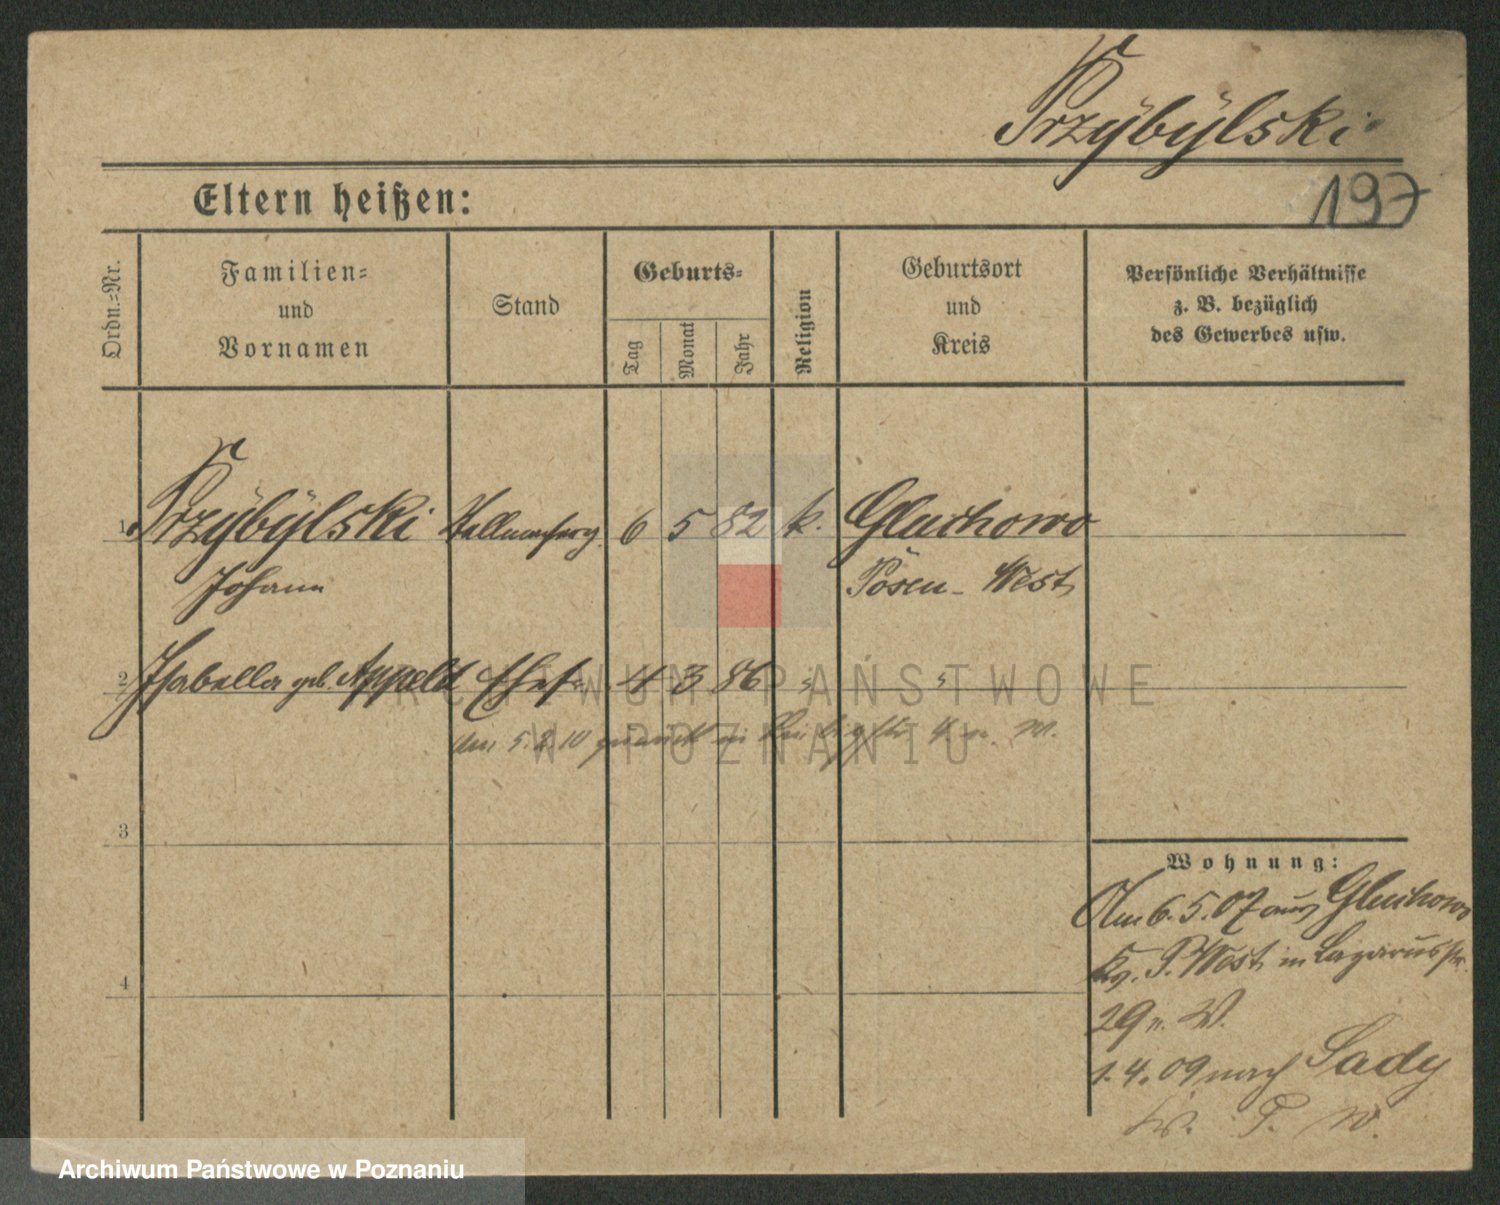 Przÿbÿlski
197
Eltern heißen:
Ordn.=Nr.
Familien=
und
Vornamen
Stand
Geburts=
Tag
Monat
Jahr
Religion
Geburtsort
und
Kreis
Persönliche Verhältnisse
z. B. bezüglich
des Gewerbes usw.
1 Przÿbÿlski 6 5 82 k. Gluchowo
Johann Posen-West
2 Isabella geb. Appelt Ehefr. 4 3 86
Am 5. 2. 10 in 4 n. W.
3
4
Wohnung:
Am 6. 5. 07 aus Gluchowo
Kr. P. West in Lazarusstr.
29 n. W.
1. 4. 09 nach Sady
Kr. P. W.
ARCHIWUM PAŃSTWOWE
W POZNANIU
Archiwum Państwowe w Poznaniu